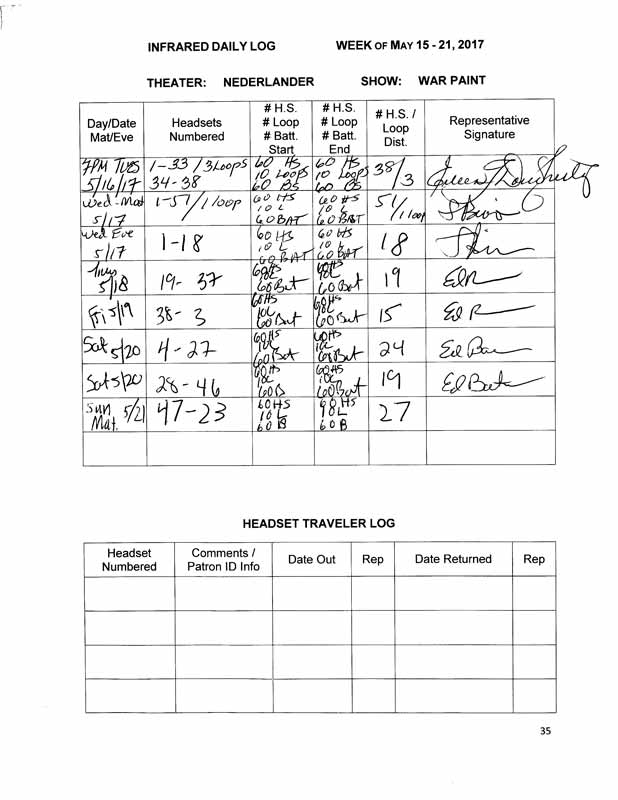 INFRARED DAILY LOG WEEK OF MAY 15 - 21, 2017
THEATER: NEDERLANDER SHOW: WAR PAINT
Day/Date Mat/Eve | Headsets Numbered | # H.S. # Loop # Batt. Start | # H.S. # Loop # Batt. End | # H.S. / Loop Dist. | Representative Signature
7PM TUES 5/16/17 | 1-33 / 3 Loops 34-38 | 60 HS 10 Loops 60 BS | 60 HS 10 Loops 60 BS | 38/3
Wed-Mat 5/17 | 1-51/1 loop | 60 HS 10 L 60 BAT | 60 HS 10 L 60 BAT | 51/1 loop
Wed Eve 5/17 | 1-18 | 60 HS 10 L 60 BAT | 60 HS 10 L 60 BAT | 18
5/18 | 19-37 | 60HS 10L 60 Bat | 60HS 10L 60 Bat | 19
Fri 5/19 | 38-3 | 60HS 10L 60 Bat | 60HS 10L 60 Bat | 15 | Ed
Sat 5/20 | 4-27 | 60HS 10L 60 Bat | 60HS 10L 60 Bat | 24 | Ed
Sat 5/20 | 28-46 | 60HS 10L 60B | 60HS 10L 60 Bat | 19 | Ed
Sun Mat. 5/21 | 47-23 | 60HS 10L 60B | 60HS 10L 60B | 27
HEADSET TRAVELER LOG
Headset Numbered | Comments / Patron ID Info | Date Out | Rep | Date Returned | Rep
35